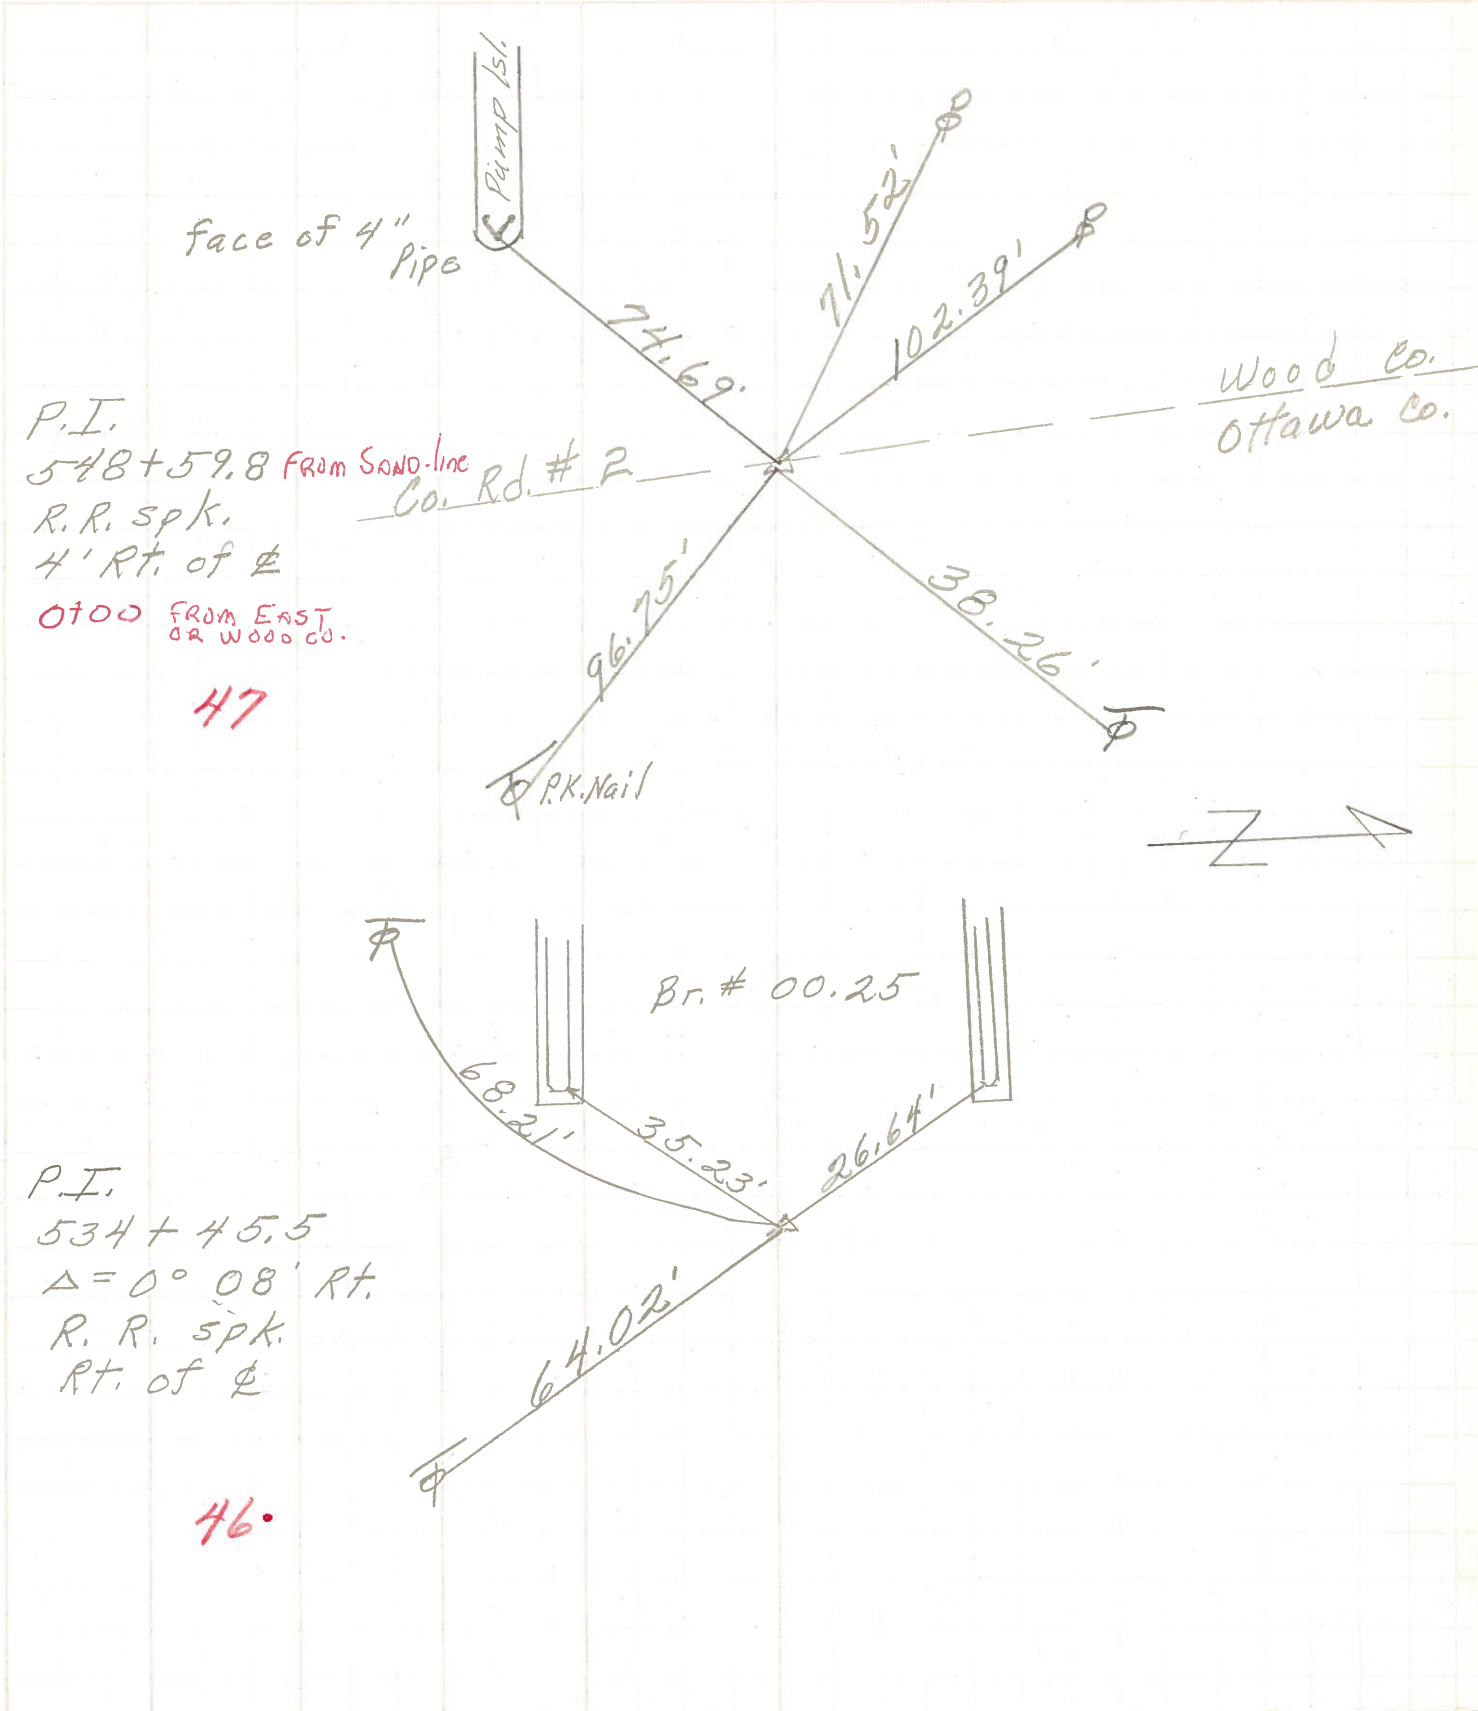 Pump Isl.
face of 4"
Pipe
74.69'
71.52'
102.39'
Wood Co.
Ottawa Co.
P.I.
548+59.8 FROM SAND-line
Co. Rd. # 2
R.R. spk.
4' Rt. of ℄
0+00 FROM EAST
OR WOOD CO.
47
96.75'
38.26'
P.K. Nail
N
Br. # 00.25
68.21'
35.23'
26.64'
P.I.
534+45.5
Δ=0° 08' Rt.
R. R. spk.
Rt. of ℄
64.02'
46.